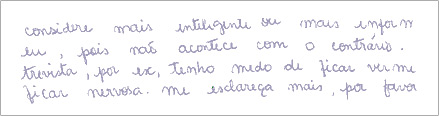 considere mais inteligente ou mais inform
eu, pois não acontece com o contrário.
trevista, por ex, tenho medo de ficar verme
ficar nervosa. me esclareça mais, por favor